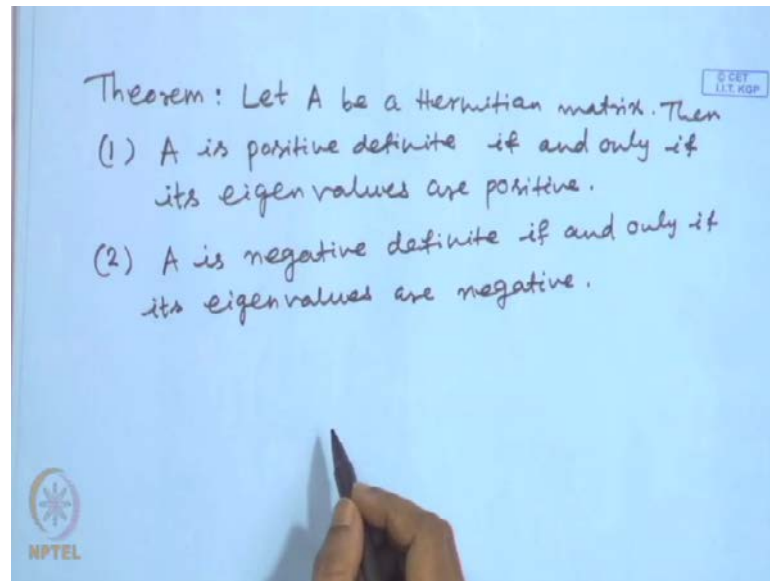 Theorem: Let A be a Hermitian matrix. Then
(1) A is positive definite if and only if
its eigen values are positive.
(2) A is negative definite if and only if
its eigenvalues are negative.
© CET
I.I.T. KGP
NPTEL